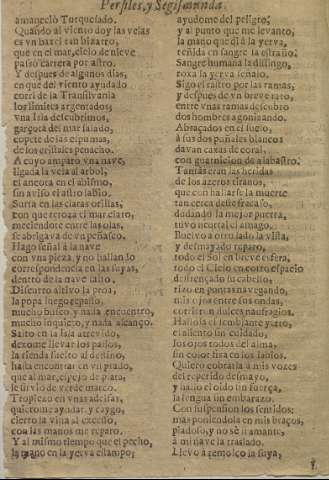 Persiles, y Segismunda.
amaneciò Turquesado.
Quando al viento doy las velas
es vn baxel tan bizarro,
que en el mar, cielo de nieve
passò carrera por astro.
Y despues de algunos dias,
en que del viento ayudado
corrì de la Transilvania
los limites argentados,
vna Isla descubrimos,
garçota del mar salado,
copete de las espumas,
de los cristales penacho.
A cuyo amparo vna nave,
ligada la vela al arbol,
el ancora en el abismo,
sin aviso el astro sabio,
Surta en las claras orillas,
con que retoza el mar claro,
meciendose entre las olas,
se abrigava de vn peñasco.
Hago señal à la nave
con vna pieza, y no hallando
correspondencia en las suyas,
dentro de la nave salto.
Discurro altivo la proa,
la popa luego espacio,
mucho busco y nada encuentro,
mucho inquieto, y nada alcanço.
Salto en la Isla atrevido,
dexome llevar los passos,
la rienda suelto al destino,
hasta encontrar en vn prado,
que al mar, espejo de plata,
le sirviò de verde marco.
Tropiezo en vnas adelfas,
quierome ayudar, y caygo,
cierro la vista al
con las manos me reparo.
Y al mismo tiempo que el pecho,
la mano en la yerva estampo,
ayudome del peligro,
y al punto que me levanto,
la mano que di à la yerva,
teñida en sangre la estraño.
Sangre humana la distingo,
roxa la yerva señalo.
Sigo el rastro por las ramas,
y despues de vn breve rato,
entre vnas ramas descubro
dos hombres agonizando.
Abraçados en el suelo,
à sus dos puñales blancos
davan caxas de coral,
con guarnicion de alabastro.
Tantas eran las heridas
de los azeros tiranos,
que con hallarse la muerte
tan cerca deste fracaso,
dudando la mejor puerta,
tuvo mortal el amago.
Buelvo à otro lado la vista,
y desmayado reparo,
todo el Sol en breve esfera,
todo el Cielo en corto espacio
destrençado su cabello,
rizo en pontas navegando,
mis ojos entre sus ondas,
corrieron dulces naufragios.
Hallole el semblante yerto,
el aliento sin cuidado,
los ojos todos del alma,
sin color fixa en los labios.
Quiero cobrarla à mis vozes
del repetido desmayo,
y hallo el oìdo sin fuerça,
la lengua sin embarazo.
Con suspension los sentidos;
mas poniendola en mis braços,
piadoso, y no sè si amante,
à mi nave la traslado.
Llevo à remolco la suya,
y